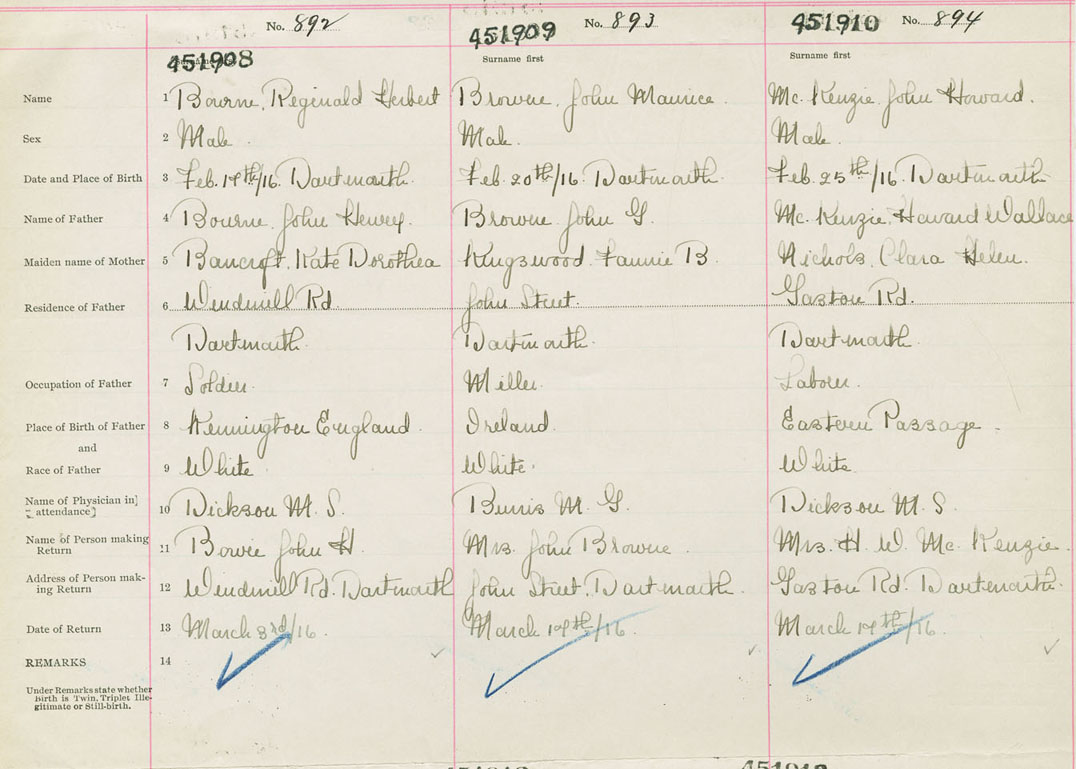 No. 892
No. 893
No. 894
451908
451909
451910
Surname first
Surname first
Name
1 Bourne, Reginald Herbert
Browne, John Maurice.
Mc. Kenzie, John Howard.
Sex
2 Male.
Male.
Male.
Date and Place of Birth
3 Feb. 17th/16. Dartmouth.
Feb. 20th/16. Dartmouth.
Feb. 25th/16. Dartmouth
Name of Father
4 Bourne, John Henry.
Browne, John G.
Mc. Kenzie, Howard Wallace
Maiden name of Mother
5 Bancroft, Kate Dorothea
Kingswood, Fannie B.
Nichols, Clara Helen.
Residence of Father
6 Windmill Rd.
John Street.
Gaston Rd.
Dartmouth.
Dartmouth.
Dartmouth.
Occupation of Father
7 Soldier.
Miller.
Labour.
Place of Birth of Father
8 Kennington England.
Ireland.
Eastern Passage.
and
Race of Father
9 White.
White.
White.
Name of Physician in
attendance
10 Dickson M. S.
M. G.
Dickson M. S.
Name of Person making
Return
11 John H.
Mrs. John Browne.
Mrs. H. W. Mc. Kenzie.
Address of Person mak-
ing Return
12 Windmill Rd. Dartmouth
John Street, Dartmouth.
Gaston Rd. Dartmouth.
Date of Return
13 March 3rd/16.
March 17th/16.
March 17th/16.
REMARKS
14
Under Remarks state whether
Birth is Twin, Triplet Ille-
gitimate or Still-birth.